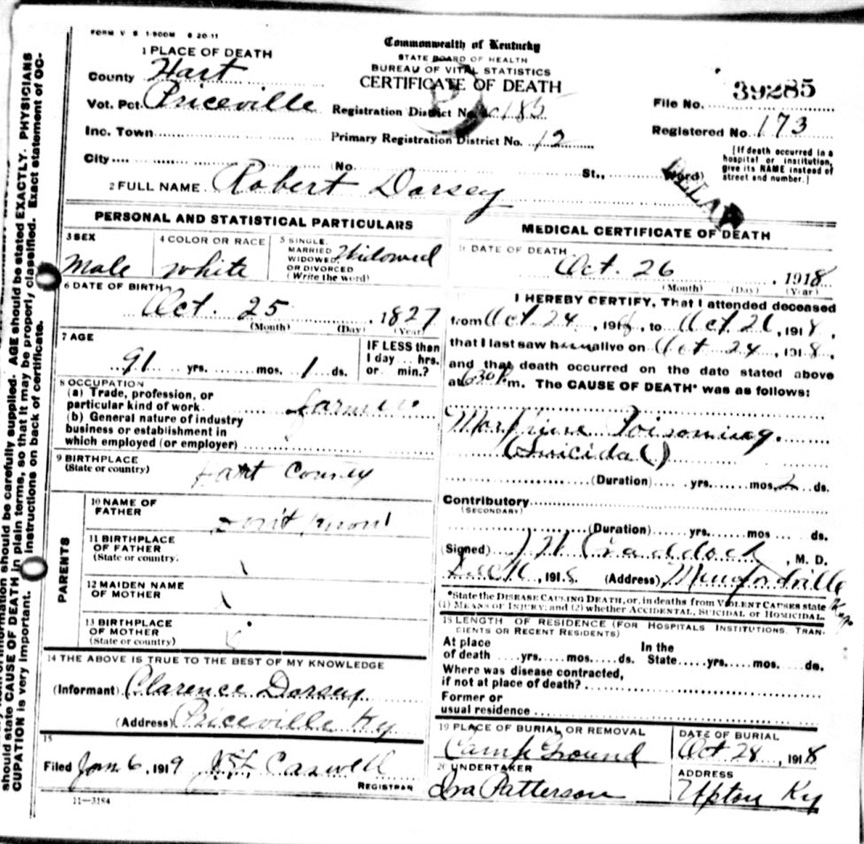 FORM V. S. 1-500M 6-20-11
Commonwealth of Kentucky
STATE BOARD OF HEALTH
BUREAU OF VITAL STATISTICS
CERTIFICATE OF DEATH
1 PLACE OF DEATH
County Hart
Vot. Pct. Priceville
Inc. Town
City
Registration District No. 185
Primary Registration District No. 12
(No. St., Ward)
File No. 39285
Registered No. 173
[If death occurred in a
hospital or institution,
give its NAME instead of
street and number.]
DELAY
2 FULL NAME Robert Dorsey
PERSONAL AND STATISTICAL PARTICULARS
3 SEX
Male
4 COLOR OR RACE
white
5 SINGLE,
MARRIED
WIDOWED,
OR DIVORCED
(Write the word)
Widowed
6 DATE OF BIRTH
Oct. 25, 1827
(Month) (Day) (Year)
7 AGE
91 yrs. mos. 1 ds.
IF LESS than
1 day ... hrs.
or ... min.?
8 OCCUPATION
(a) Trade, profession, or
particular kind of work Farmer
(b) General nature of industry
business or establishment in
which employed (or employer)
9 BIRTHPLACE
(State or country)
Hart County
PARENTS
10 NAME OF
FATHER
Don't know
11 BIRTHPLACE
OF FATHER
(State or country.
12 MAIDEN NAME
OF MOTHER
13 BIRTHPLACE
OF MOTHER
(State or country)
14 THE ABOVE IS TRUE TO THE BEST OF MY KNOWLEDGE
(Informant) Clarence Dorsey
(Address) Priceville Ky
15
Filed Jan 6, 1919 Caswell
REGISTRAR
11—3184
MEDICAL CERTIFICATE OF DEATH
DATE OF DEATH
Oct. 26, 1918
(Month) (Day) (Year)
I HEREBY CERTIFY, That I attended deceased
from Oct 24, 1918, to Oct 26, 1918,
that I last saw him alive on Oct 24, 1918,
and that death occurred on the date stated above
at 630 P. m. The CAUSE OF DEATH* was as follows:
Morphine Poisoning.
(Suicidal)
(Duration) yrs. mos. 2 ds.
Contributory
(SECONDARY)
(Duration) yrs. mos ds.
(Signed) Craddock, M. D.
1918 (Address) Munfordville
Ky
*State the DISEASE CAUSING DEATH, or, in deaths from VIOLENT CAUSES state
(1) MEANS OF INJURY; and (2) whether ACCIDENTAL, SUICIDAL or HOMICIDAL.
18 LENGTH OF RESIDENCE (FOR HOSPITALS INSTITUTIONS, TRAN-
CIENTS OR RECENT RESIDENTS)
At place
of death yrs. mos. ds.
In the
State yrs. mos. ds.
Where was disease contracted,
if not at place of death?
Former or
usual residence
19 PLACE OF BURIAL OR REMOVAL
Camp Ground
DATE OF BURIAL
Oct 28, 1918
20 UNDERTAKER
Ira Patterson
ADDRESS
Upton Ky
information should be carefully supplied. AGE should be stated EXACTLY. PHYSICIANS
should state CAUSE OF DEATH in plain terms, so that it may be properly classified. Exact statement of OC-
CUPATION is very important. Instructions on back of certificate.